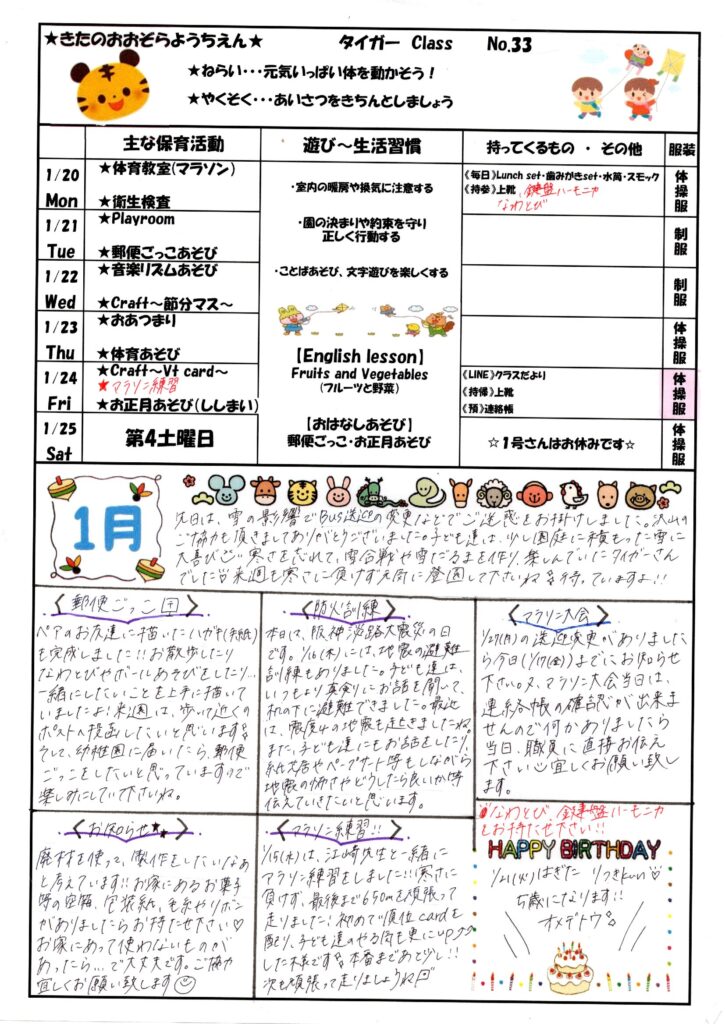 ★きたのおおぞらようちえん★ タイガー Class No.33
★ねらい・・・元気いっぱい体を動かそう！
★やくそく・・・あいさつをきちんとしましょう
主な保育活動 遊び～生活習慣 持ってくるもの ・ その他 服装
1/20 Mon
★体育教室(マラソン)
★衛生検査
・室内の暖房や換気に注意する
《毎日》Lunch set・歯みがきset・水筒・スモック
《持参》上靴、鍵盤ハーモニカ
なわとび
体操服
1/21 Tue
★Playroom
★郵便ごっこあそび
・園の決まりや約束を守り
正しく行動する
制服
1/22 Wed
★音楽リズムあそび
★Craft～節分マス～
・ことばあそび、文字遊びを楽しくする
制服
1/23 Thu
★おあつまり
★体育あそび
【English lesson】
Fruits and Vegetables
(フルーツと野菜)
体操服
1/24 Fri
★Craft～Vt card～
★マラソン練習
★お正月あそび(ししまい)
《LINE》クラスだより
《持帰》上靴
《預》連絡帳
体操服
1/25 Sat
第4土曜日
【おはなしあそび】
郵便ごっこ・お正月あそび
☆1号さんはお休みです☆
体操服
1月
先日は、雪の影響でBus送迎の変更などでご迷惑をお掛けしました。沢山の
ご協力を頂きましてありがとうございました。子ども達は、少し園庭に積もった雪に
大喜び 寒さを忘れて、雪合戦や雪だるまを作り、楽しんでいたタイガーさん
でした 来週も寒さに負けず元気に登園して下さいね 待っていますよ!!
郵便ごっこ
ペアのお友達に描いたハガキ(手紙)
を完成しました!!お散歩したり
なわとびやボールあそびをしたり…
一緒にしたいことを上手に描いて
いましたよ!来週は、歩いて近くの
ポストへ投函したいと思います
そして、幼稚園に届いたら、郵便
ごっこをしたいと思っていますので
楽しみにしていて下さいね。
防火訓練
本日は、阪神淡路大震災の日
です。1/16(木)には、地震の避難
訓練もありました。子ども達は、
いつもより真剣にお話を聞いて、
机の下に避難できました。最近
は、震度4の地震も起きましたね。
また、子ども達にもお話をしたり、
紙芝居やペープサート等もしながら
地震の怖さやどうしたら良いか等
伝えていきたいと思います。
マラソン大会
1/27(月)の送迎変更がありました
ら今日(1/17(金))までにお知らせ
下さい。又、マラソン大会当日は、
連絡帳の確認が出来ま
せんので何かありましたら
当日、職員に直接お伝え
下さい 宜しくお願い致し
ます。
なわとび、鍵盤ハーモニカ
をお持たせ下さい!!
お知らせ
廃材を使って、製作をしたいなぁ
と考えています!!お家にあるお菓子
等の空箱、包装紙、毛糸やリボン
がありましたらお持たせ下さい♡
お家にあって使わないものが
あったら…で大丈夫です。ご協力
宜しくお願い致します
マラソン練習!!
1/15(水)は、江崎先生と一緒に
マラソン練習をしました!!寒さに
負けず、最後まで650mを頑張って
走りました!初めて順位cardを
配り、子ども達のやる気も更にup
した様です 本番まであと少し!!
次も頑張って走りましょうね
HAPPY BIRTHDAY
1/21(火)はぎた りつきkun♡
5歳になります!!
オメデトウ